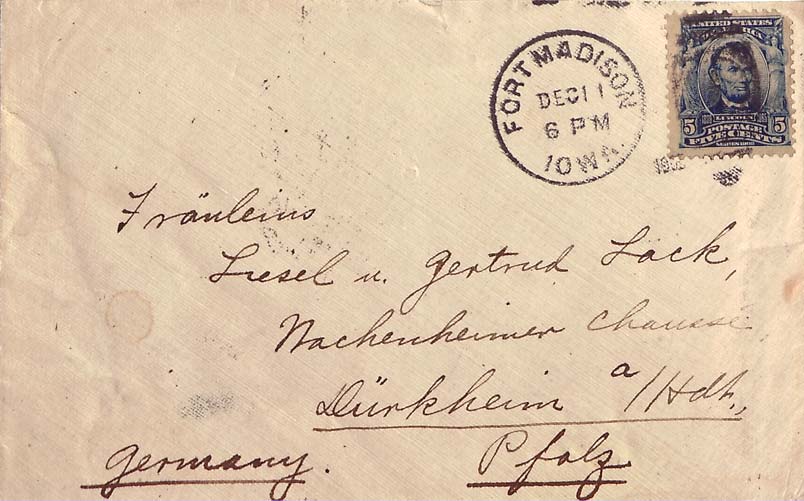 UNITED STATES
OF AMERICA
5 LINCOLN 5
POSTAGE
FIVE CENTS
FORT MADISON
DEC 11
6 PM
IOWA.
Fräuleins
Liesel u. Gertrud Lack,
Wachenheimer Chaussé
Dürkheim a/Hdt.,
Germany. Pfalz